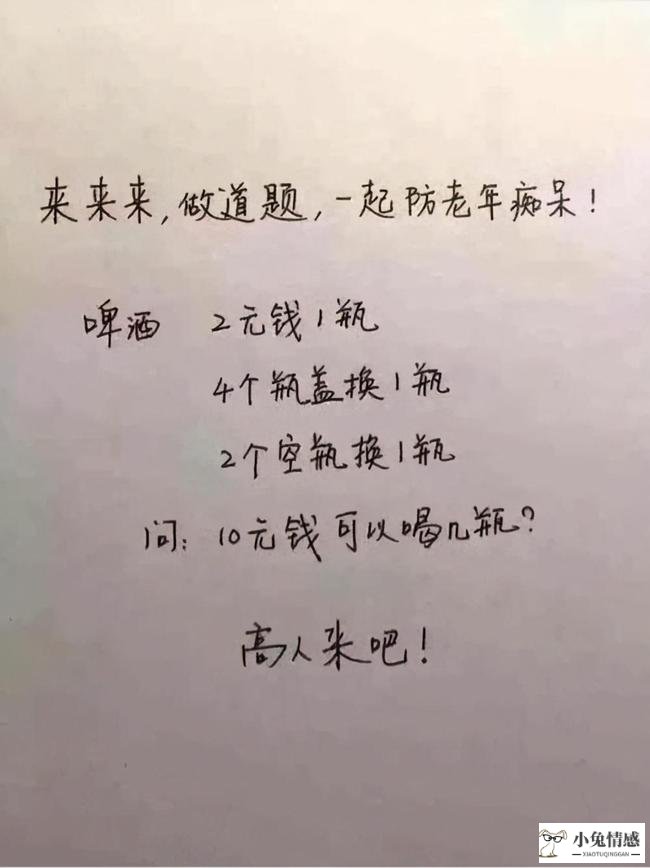 来来来,做道题,一起防老年痴呆!
啤酒 2元钱1瓶
4个瓶盖换1瓶
2个空瓶换1瓶
问: 10元钱可以喝几瓶?
高人来吧!
小兔情感
XIAOTUQINGGAN